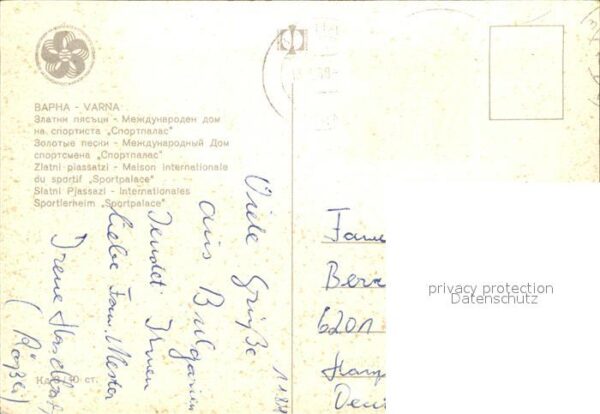 ВАРНА - VARNA
Златни пясъци - Международен дом
на спортиста „Спортпалас"
Золотые пески - Международный Дом
спортсмена „Спортпалас"
Zlatni piassatzi - Maison internationale
du sportif „Sportpalace"
Slatni Pjassazi - Internationales
Sportlerheim „Sportpalace"
Viele Grüße
aus Bulgarien
sendet Ihnen
liebe Fam. Mester
Irene
Кд 8/10 ст.
Fam
Ber
6201
privacy protection
Datenschutz